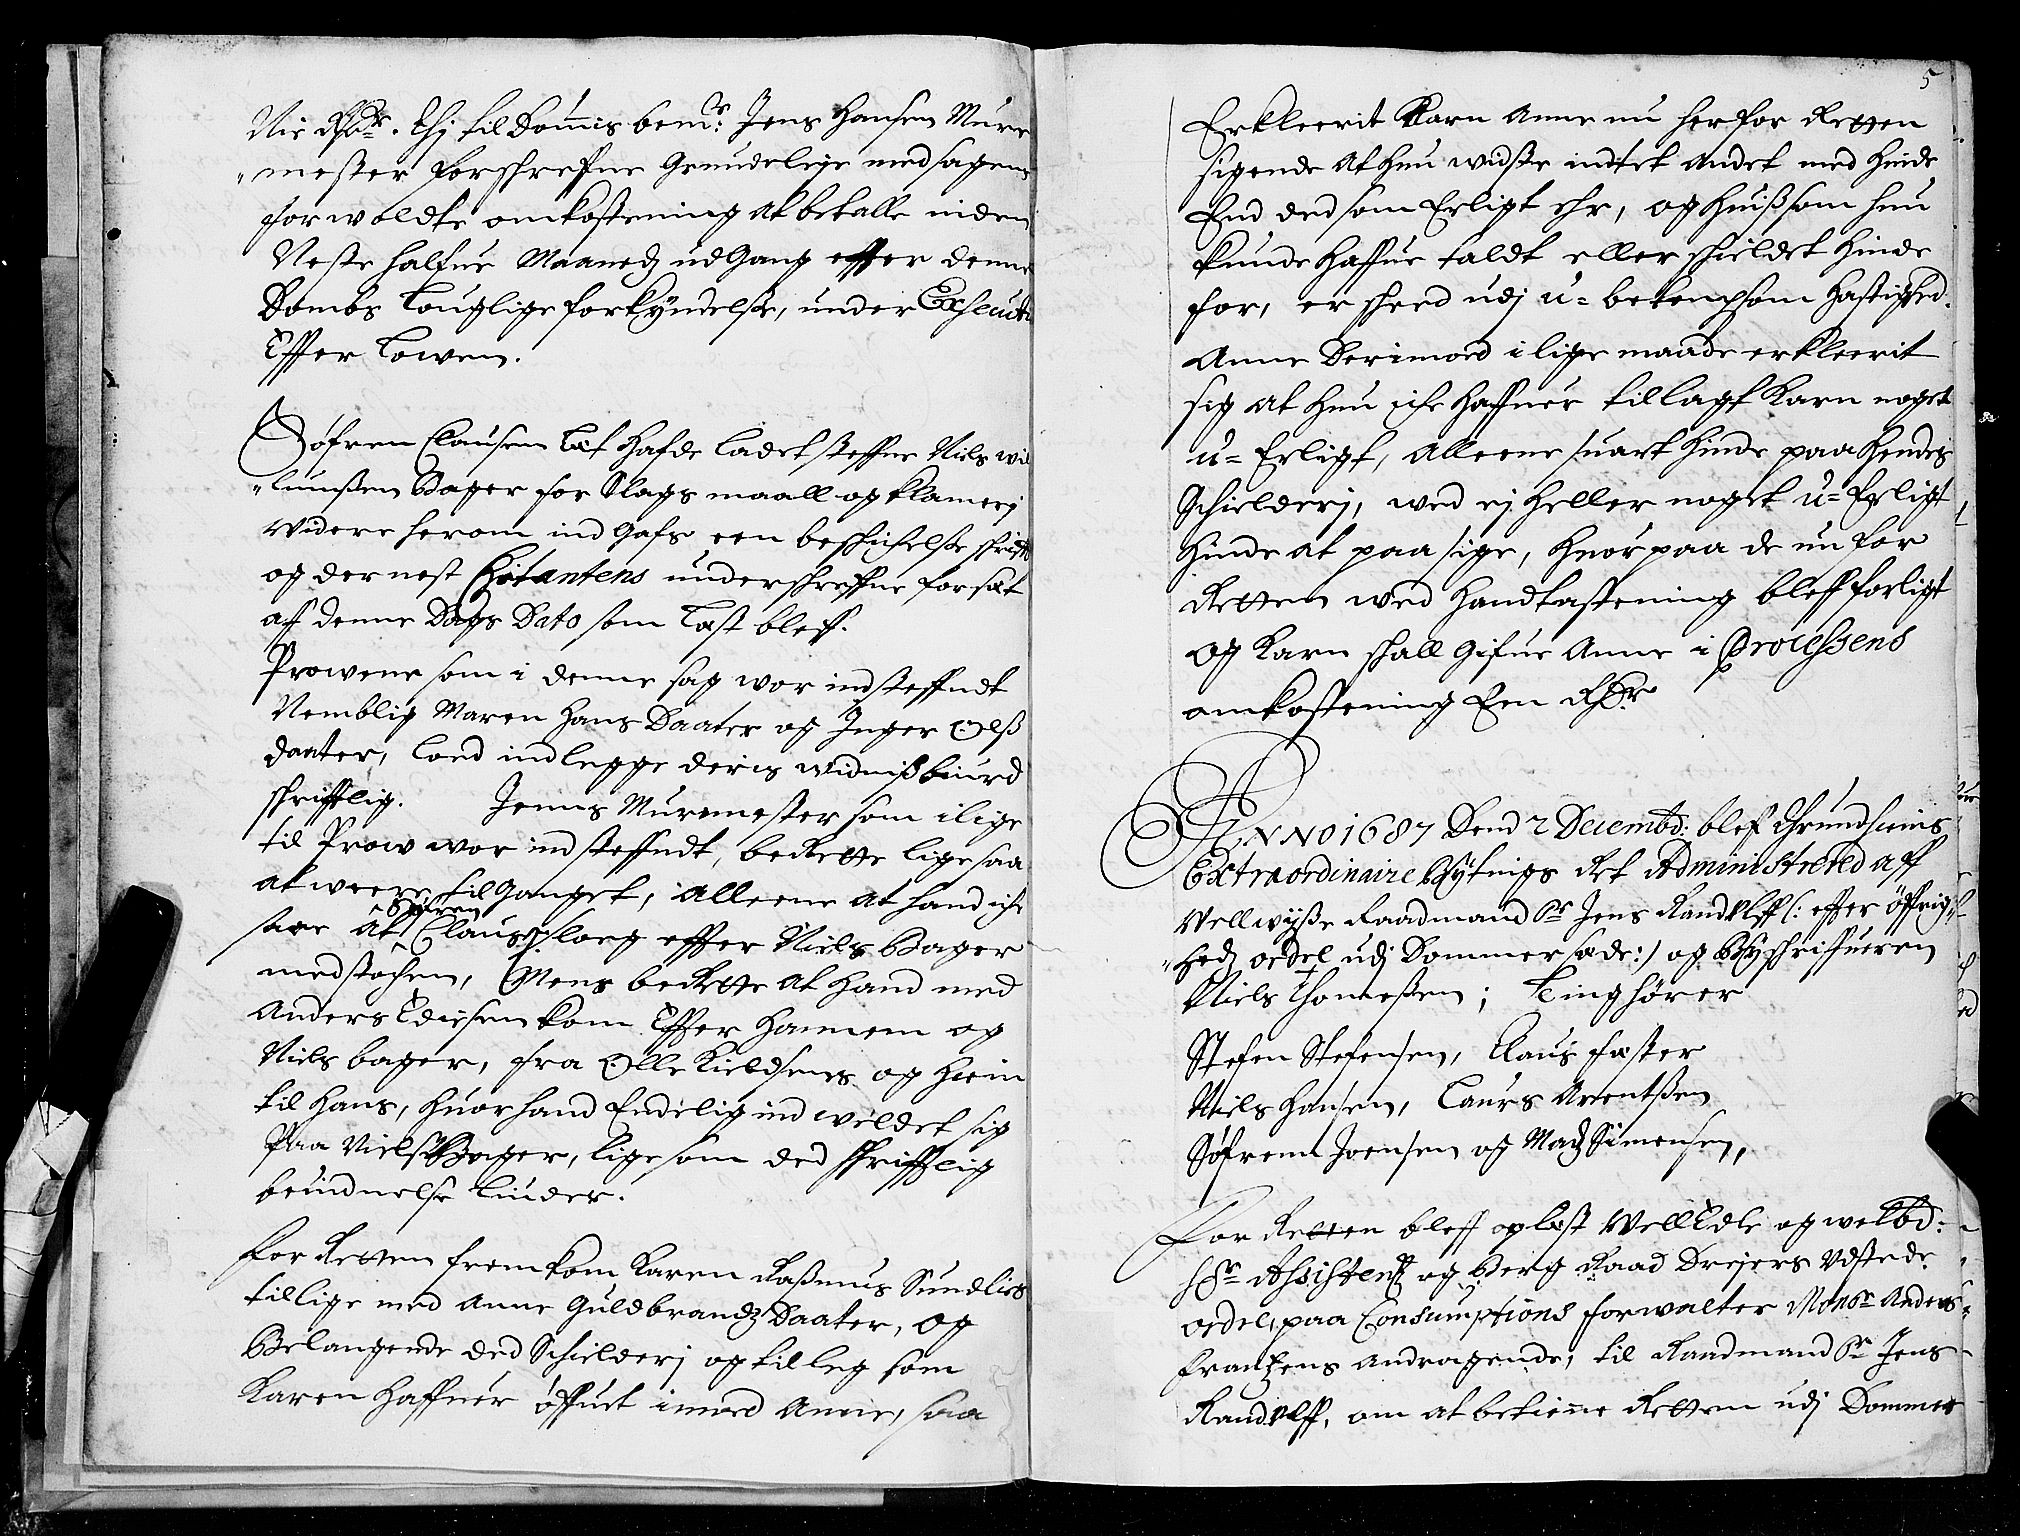 Nie Rdr. Thj til Dømis bem:te Jens Hansen Mure
"mester forschrefne Grundeleje med sagens
forwoldte omkostening at betalle inden
Neste halfue Maanedz udgang effter denne
Dombs louglige forkyndelse, under Execution
Effter lowen.
Søfren Clausen Lot hafde ladet steffne Niels wil
"lumßen Bager for Slagsmaall og klamerj
widere herom ind gafs een beschichelse schrifft
og der nest Citantens underschreffne forsæt
aff denne Dags Dato som læst bleff.
Prowene som i denne sag wor indsteffndt
Nemblig Maren Hans Daater og Inger Olß
daater, loed indlegge deris widnißbiurd
schrifftlig. Jenns Muremester som ilige
til Prow wor indsteffndt, bekrette lige saa
at weere tilganget, alleene at hand iche
saae at Søfren Clausß: sloeg effter Niels Bager
med stochen, Mens bekrette at hand med
Anders Edisen kom Effter hannem og
Niels bager, fra Olle Kieldsens og hiem
til Hans, huor hand Endelig ind weldet sig
Paa Niels Bager, lige som ded schrifftlig
beuidnelse liuder.
For Retten fremkom Karen Rasmus Sundlies
tillige med Anne Guldbrandz Daater, og
Belangende ded Schielderj og tilleg som
Karen haffuer öffuet imoed Anne, saa
5
Erkleerit Karn Anne nu her for Retten
sigende at hun widste indtet andet med hinde
End ded som Erligt ehr, og huiß som hun
kunde haffue taldt eller schieldet hinde
for, er scheed udj u=betenchsom hastighed.
Anne Derimoed i lige maade erkleerit
sig at hun iche haffuer tillagt Karn noget
u=Erligt, alleene suart hinde paa hendes
Schielderj, wed ej heller noget u=Erligt
hinde at paasige, huorpaa de nu for
Retten wed handtastening bleff forligt
og Karn schall gifue Anne i Processens
omkostening Een Rdr
ANNO 1687 Dend 2 Decembd: blef Thrundhiems
Extraordinaire Bytings Ret Administrered aff
Wellwyße Raadmand Sr Jens Randulff (: effter öffrig=
"hedz ordel udj Dommer sæde:) og Byschriffueren
Niels Thomeßen; Tinghörer
Stefen Stefensen, Claus faster
Niels Hansen, Laurs Arentßen
Söfren Joensen og Madz Simensen,
For Retten bleff oplæst WellEdle og welbd:
Hr Assistentz og Berg Raad Drejers udstede
ordel, paa Consumptions forwalter Monsr Anders
Frantzens andragende, til Raadmand Sr Jens
Randulff, om at betienne Retten udj Dommer